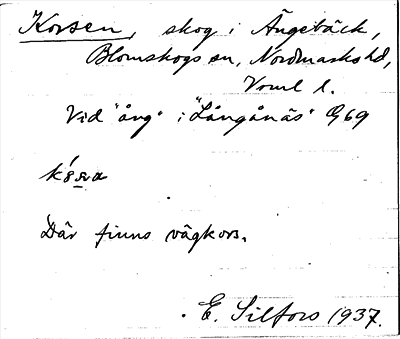 Korsen, skog i Ängebäck,
Blomskogs sn, Nordmarks hd,
Vrml l.
Vid "äng" i "Långånäs" G69
Där finns vägkors.
E. Silfors 1937.